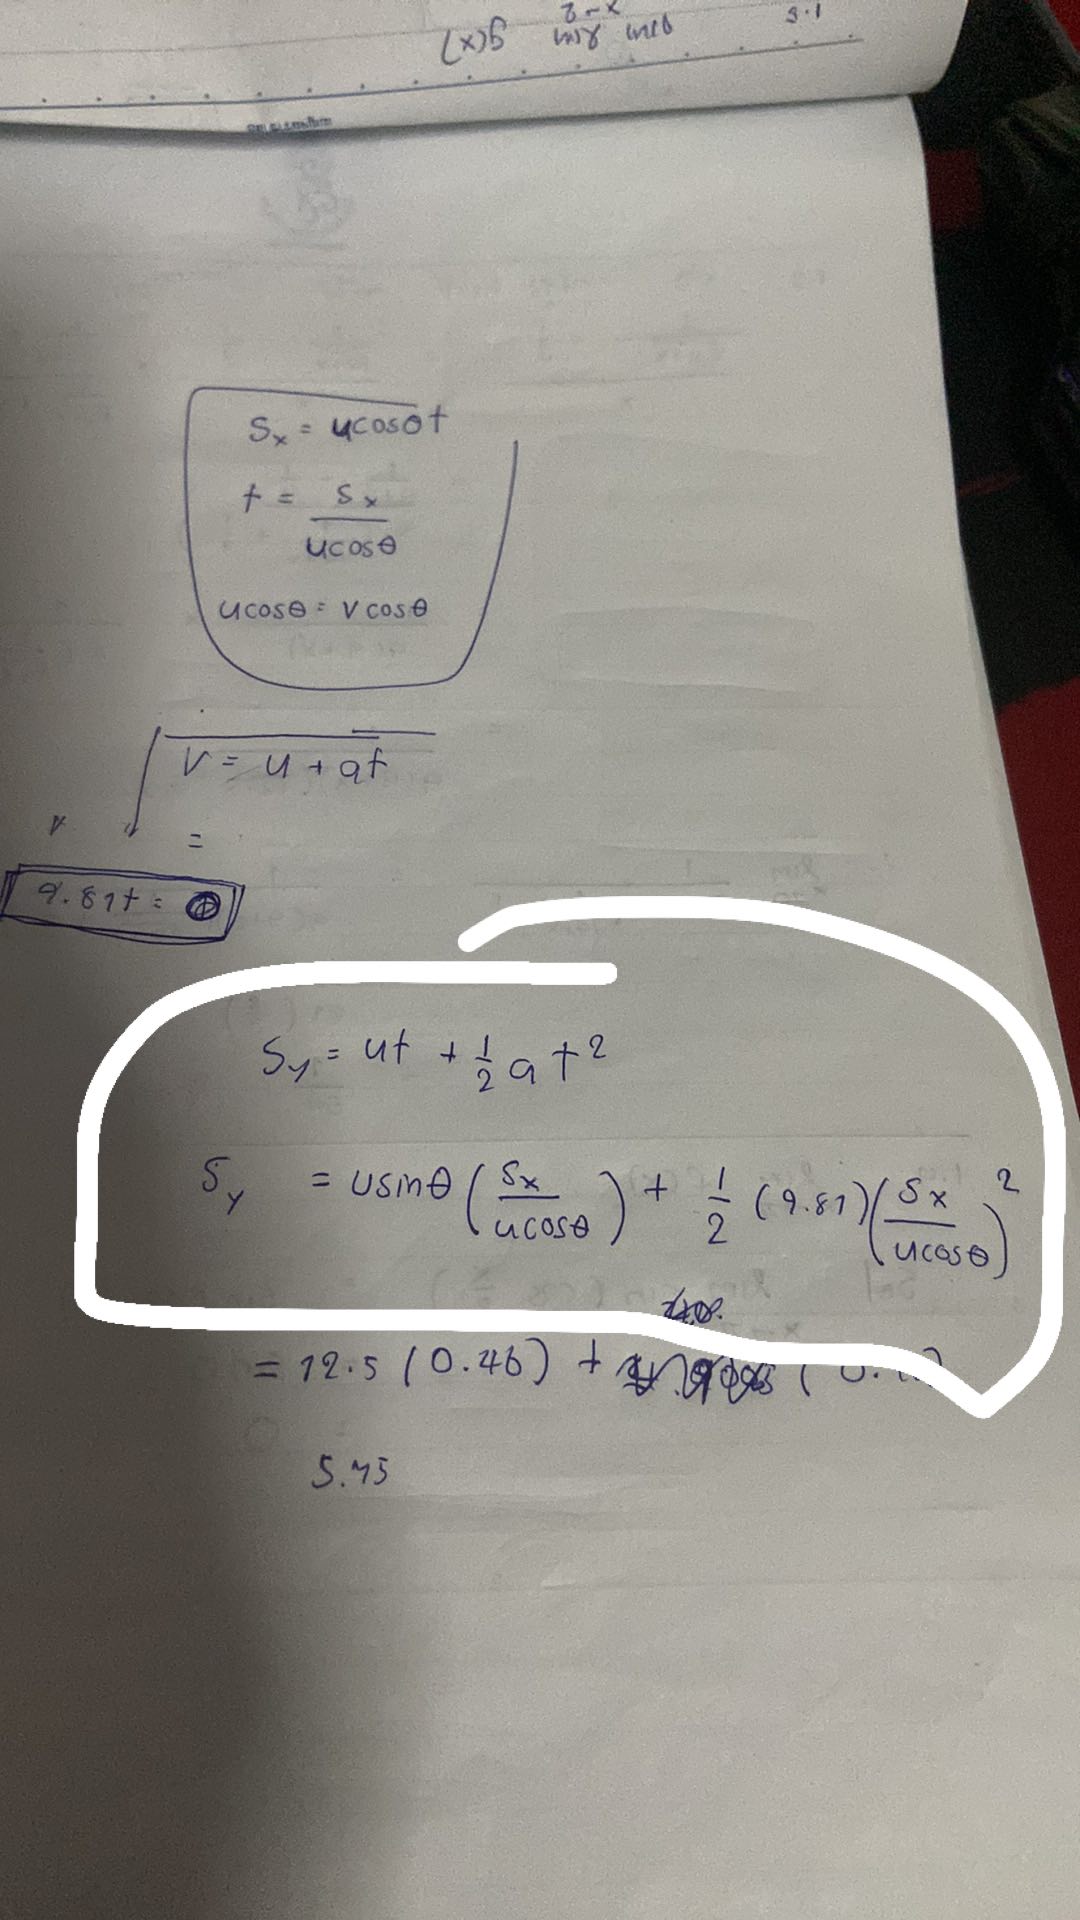 Sx = ucosθt
t = Sx / ucosθ
ucosθ = vcosθ
V = u + at
=
9.81t =
Sy = ut + 1/2 at²
Sy = usinθ (Sx / ucosθ) + 1/2 (9.81) (Sx / ucosθ)²
= 12.5 (0.46) +
5.75